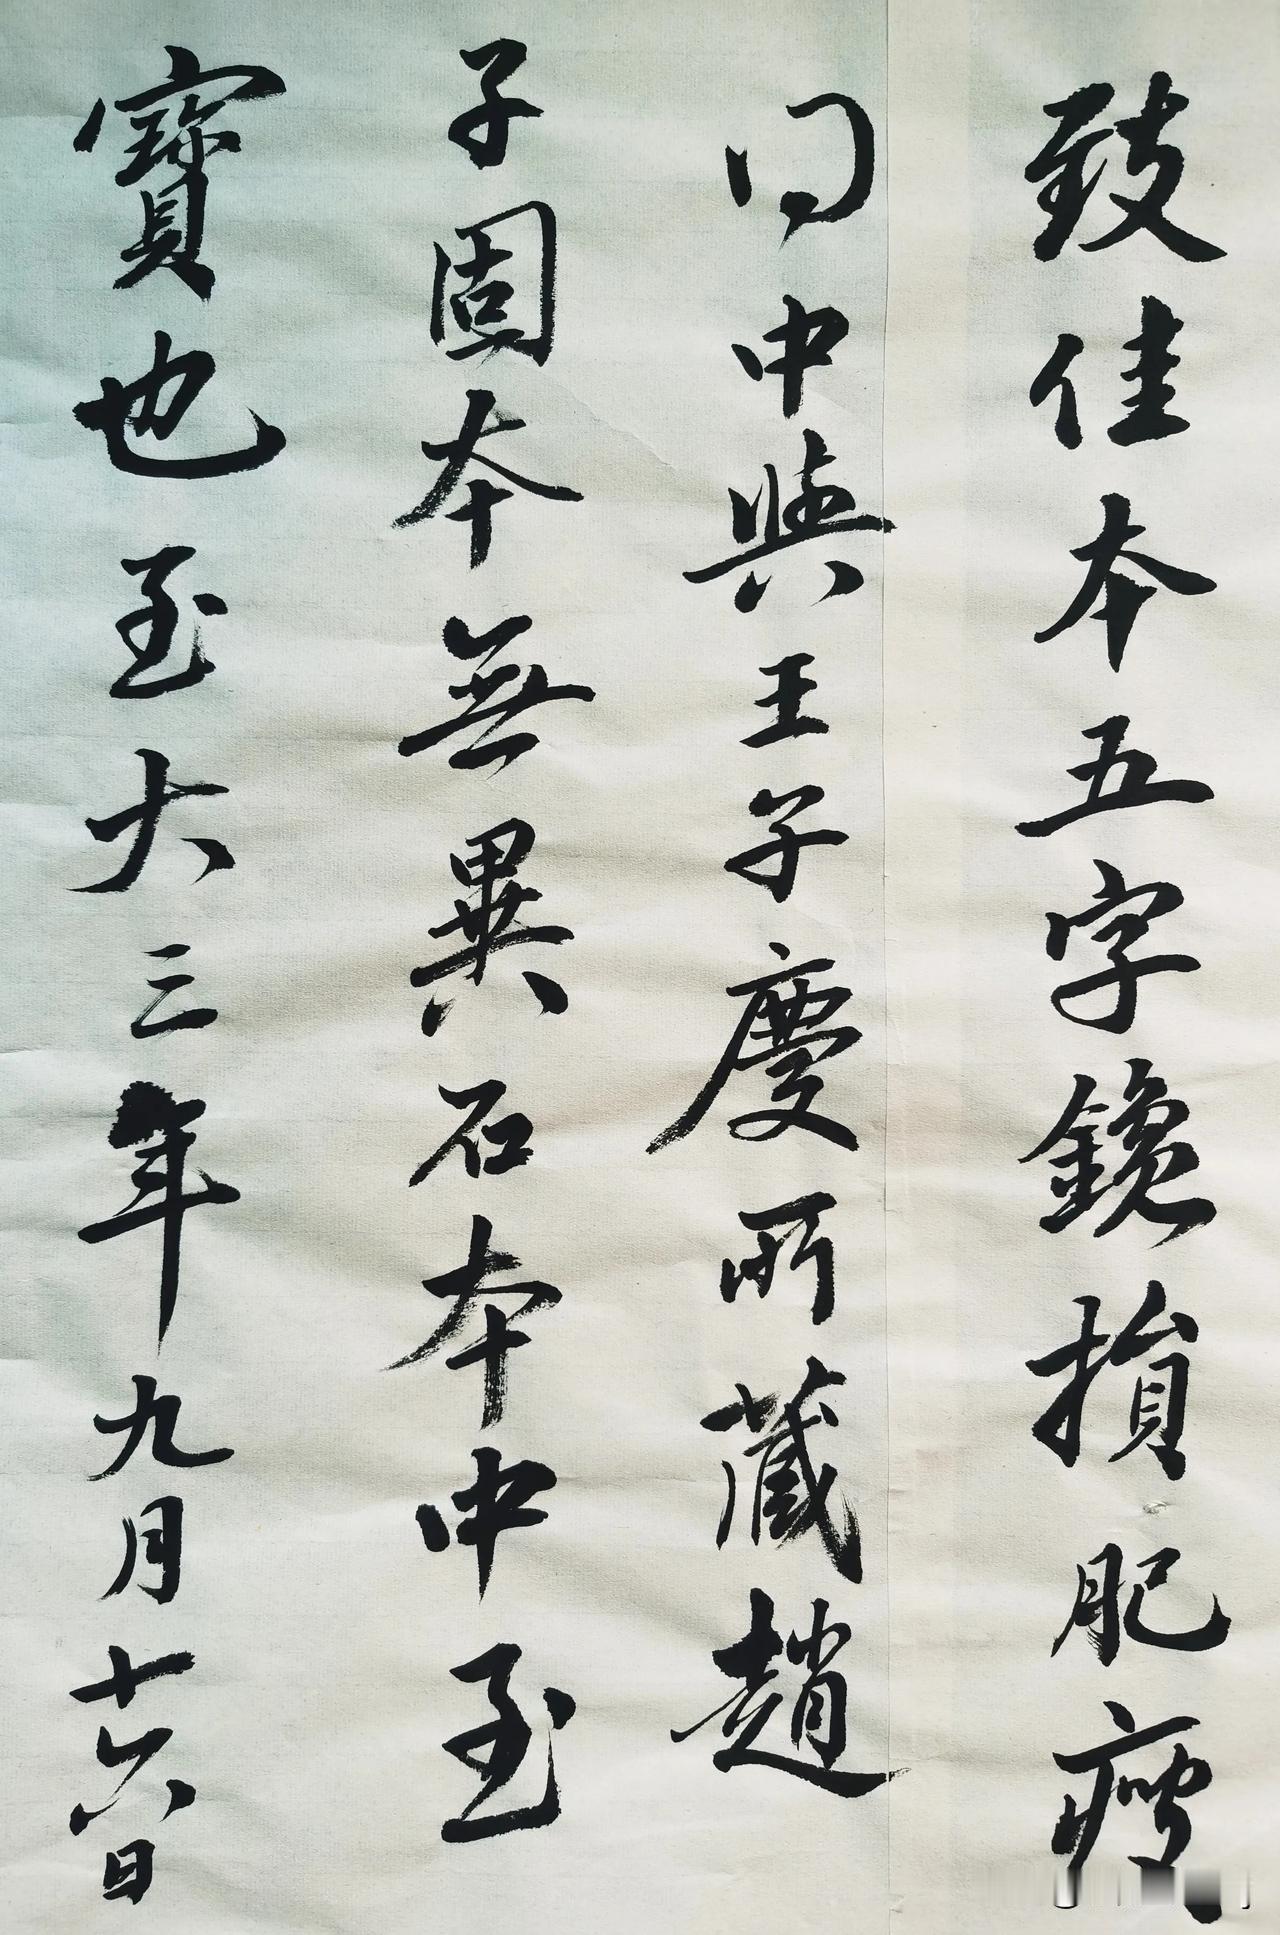 致佳本五字鑱損肥瘦
得中與王子慶所藏趙
子固本無異石本中至
寶也至大三年九月十六日